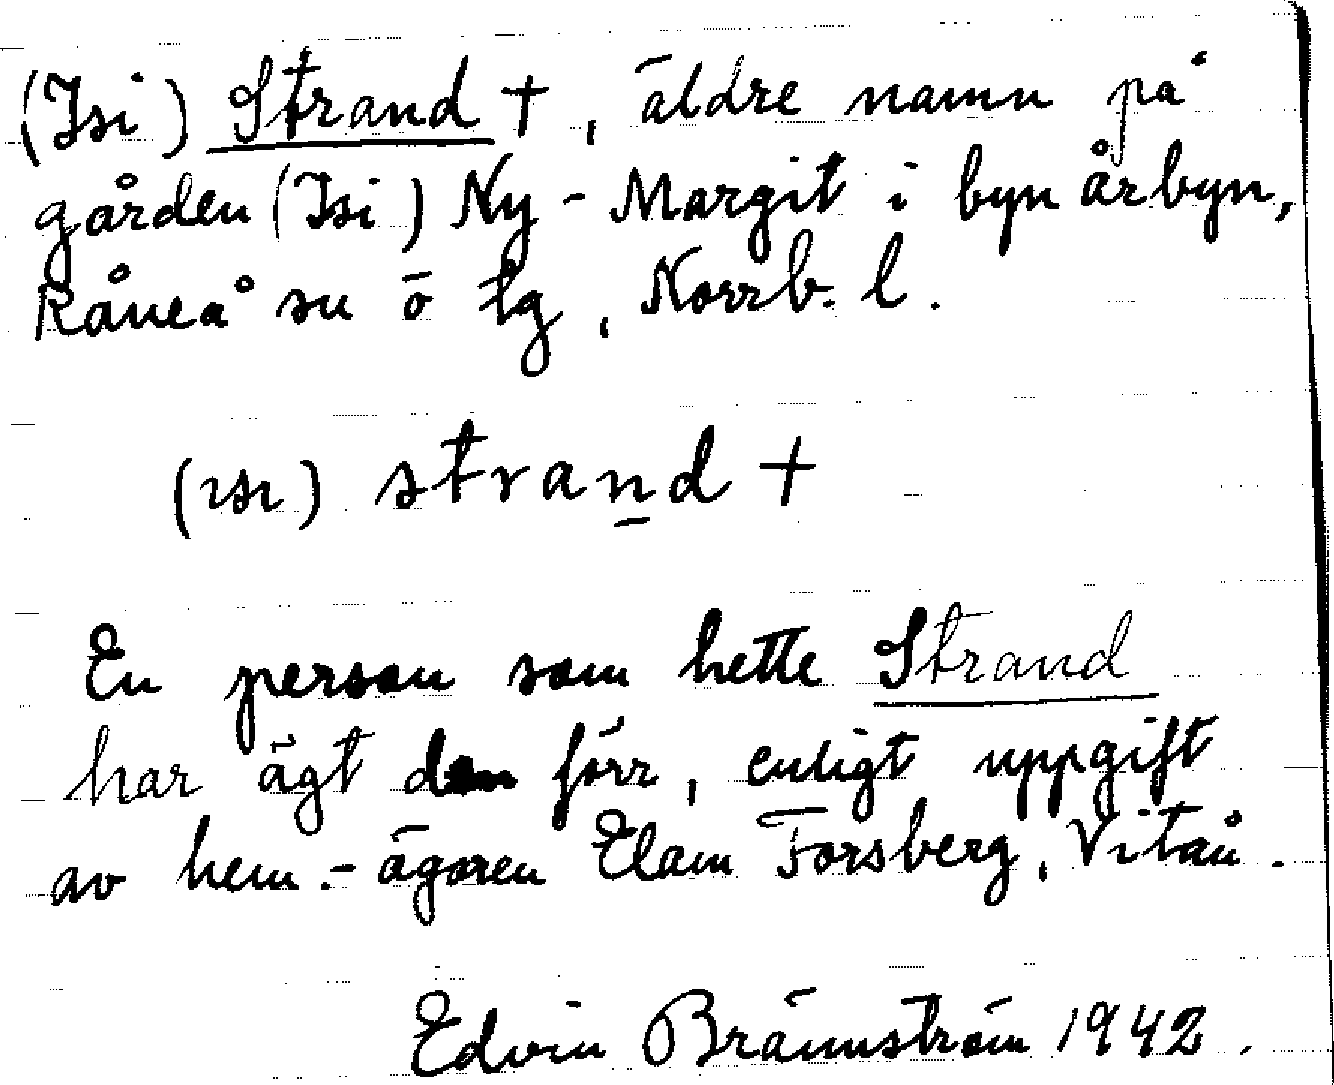 (Isi) Strand +, äldre namn på
gården (Isi) Ny-Margit i byn Årbyn,
Råneå sn ö tg, Norrb. l.
(ısı) straṉd +
En person som hette Strand
har ägt den förr, enligt uppgift
av hem.-ägaren Elam Forsberg, Vitån.
Edvin Brännström 1942.